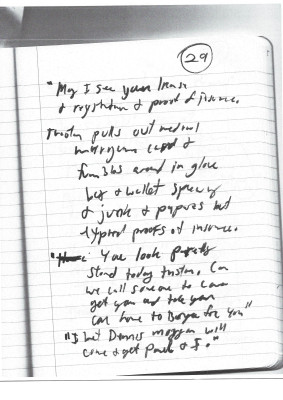 29
"May I see your license
& registration & proof of insurance.
Tristan pulls out medical
marijuana card &
fumbles around in glove
box & wallet spewing
& junk & papers but
expired proofs of insurance.
" You look pretty
stoned today Tristan. Can
we call someone to come
get you and take your
car home to for you"
"I bet Dennis Morgan will
come & get Paul & I."